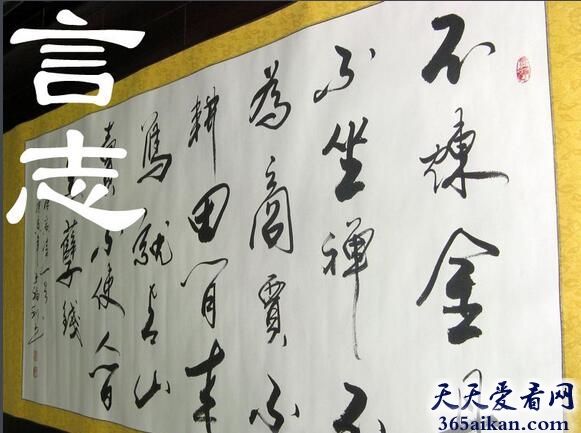 言志
不煉金
不坐禪不
為商賈不
耕田閒来
寫就青山
賣不使人間
孽錢
天天爱看网
365aikan.com